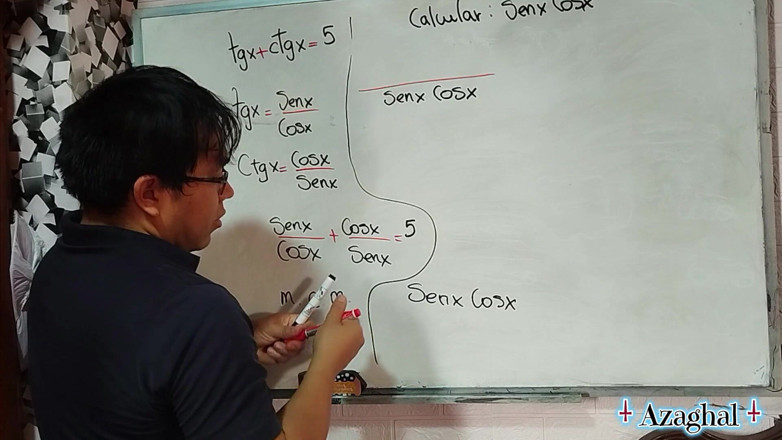 tgx+ctgx=5
Calcular: Senx Cosx
tgx= Senx
Cosx
Ctgx= Cosx
Senx
Senx + Cosx =5
Cosx Senx
m c m
Senx Cosx
Senx Cosx
Azaghal